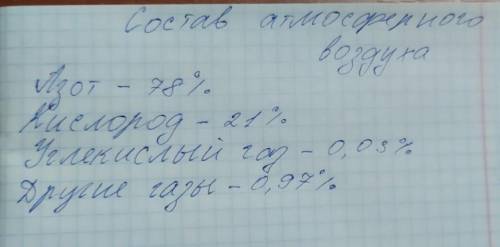 Состав атмосферного
воздуха
Азот - 78%
Кислород - 21%
Углекислый газ - 0,03%
Другие газы - 0,97%